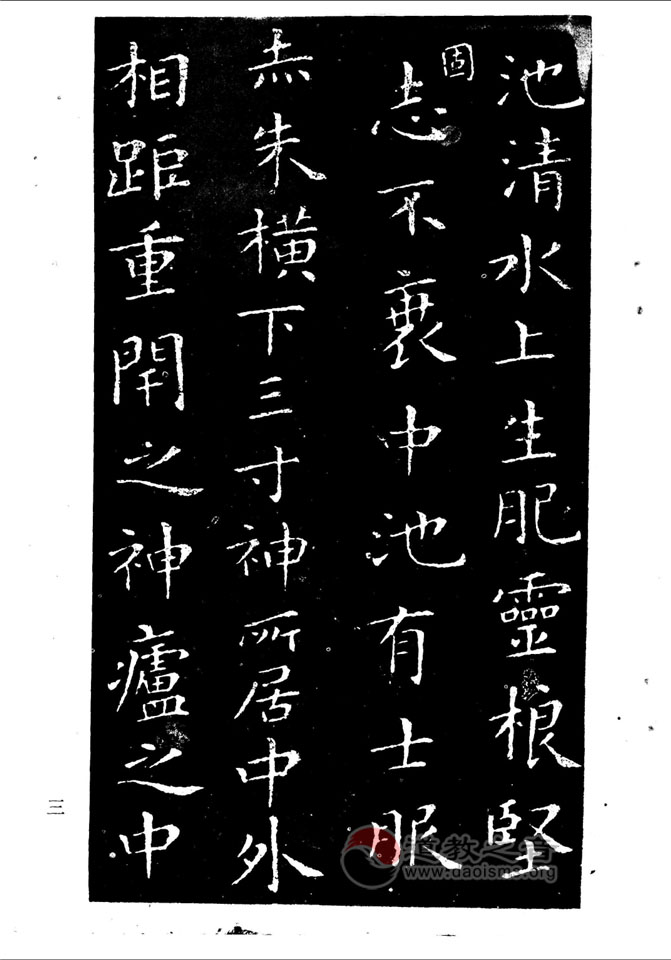 池清水上生肥靈根堅
固志不衰中池有士服
赤朱橫下三寸神所居中外
相距重閇之神廬之中
三
道教之音
www.daoisms.org